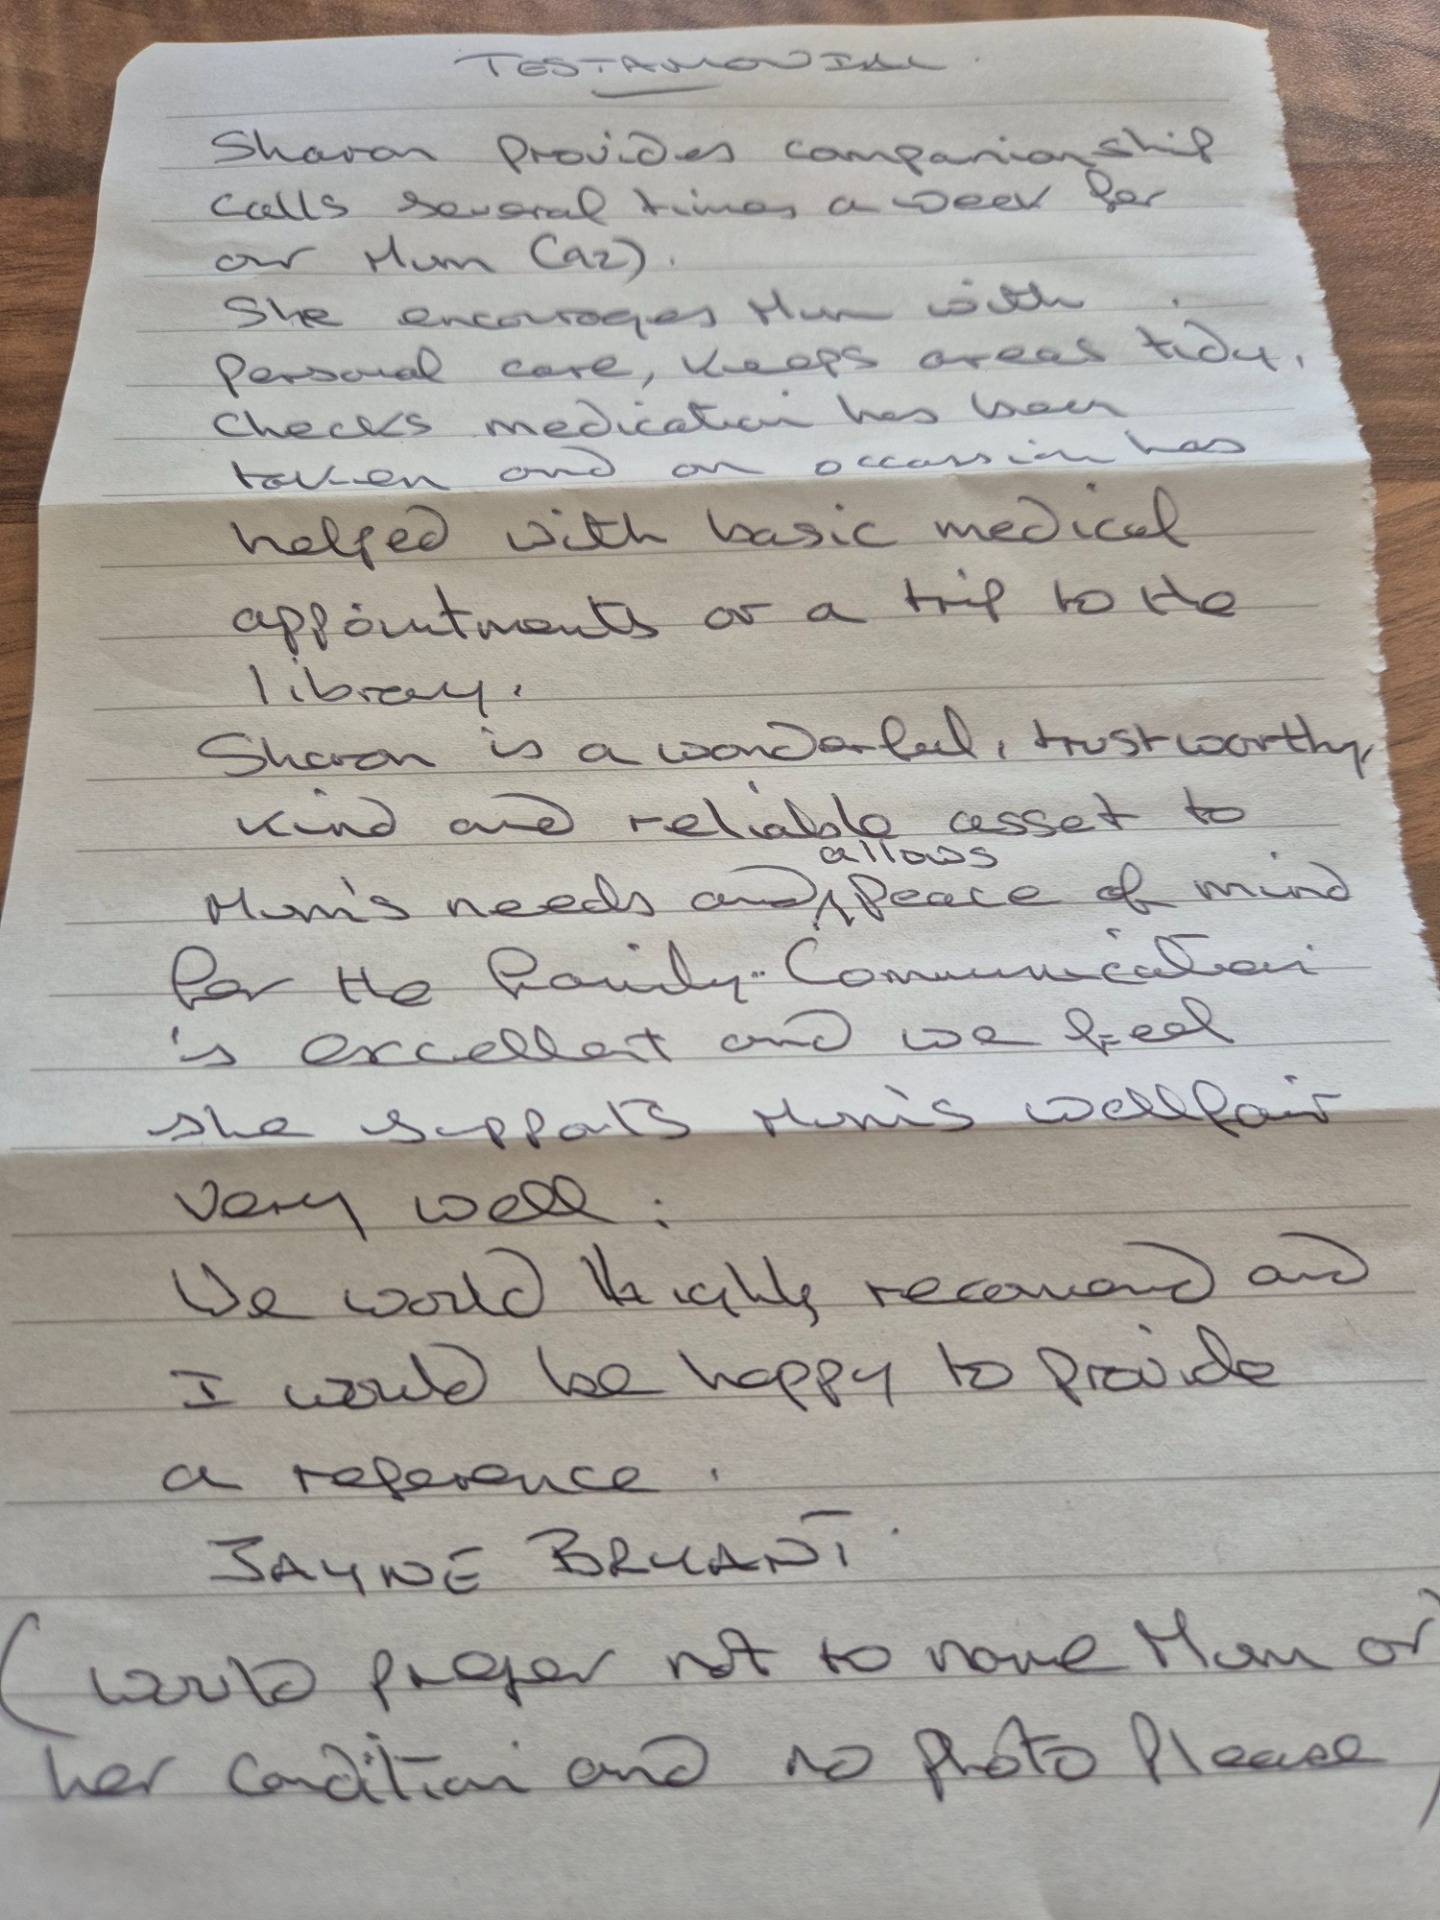 TESTAMONIAL.
Sharon provides companionship
calls several times a week for
our Mum (92).
She encourages Mum with
personal care, keeps areas tidy,
checks medication has been
taken and on occassion has
helped with basic medical
appointments or a trip to the
library.
Sharon is a wonderful, trustworthy,
kind and reliable asset to
allows
Mum's needs and peace of mind
for the family. Communication
is excellent and we feel
she supports Mum's wellfair
very well.
We would highly recommend and
I would be happy to provide
a reference.
JAYNE BRYANT.
(would prefer not to name Mum or
her condition and no photo please)